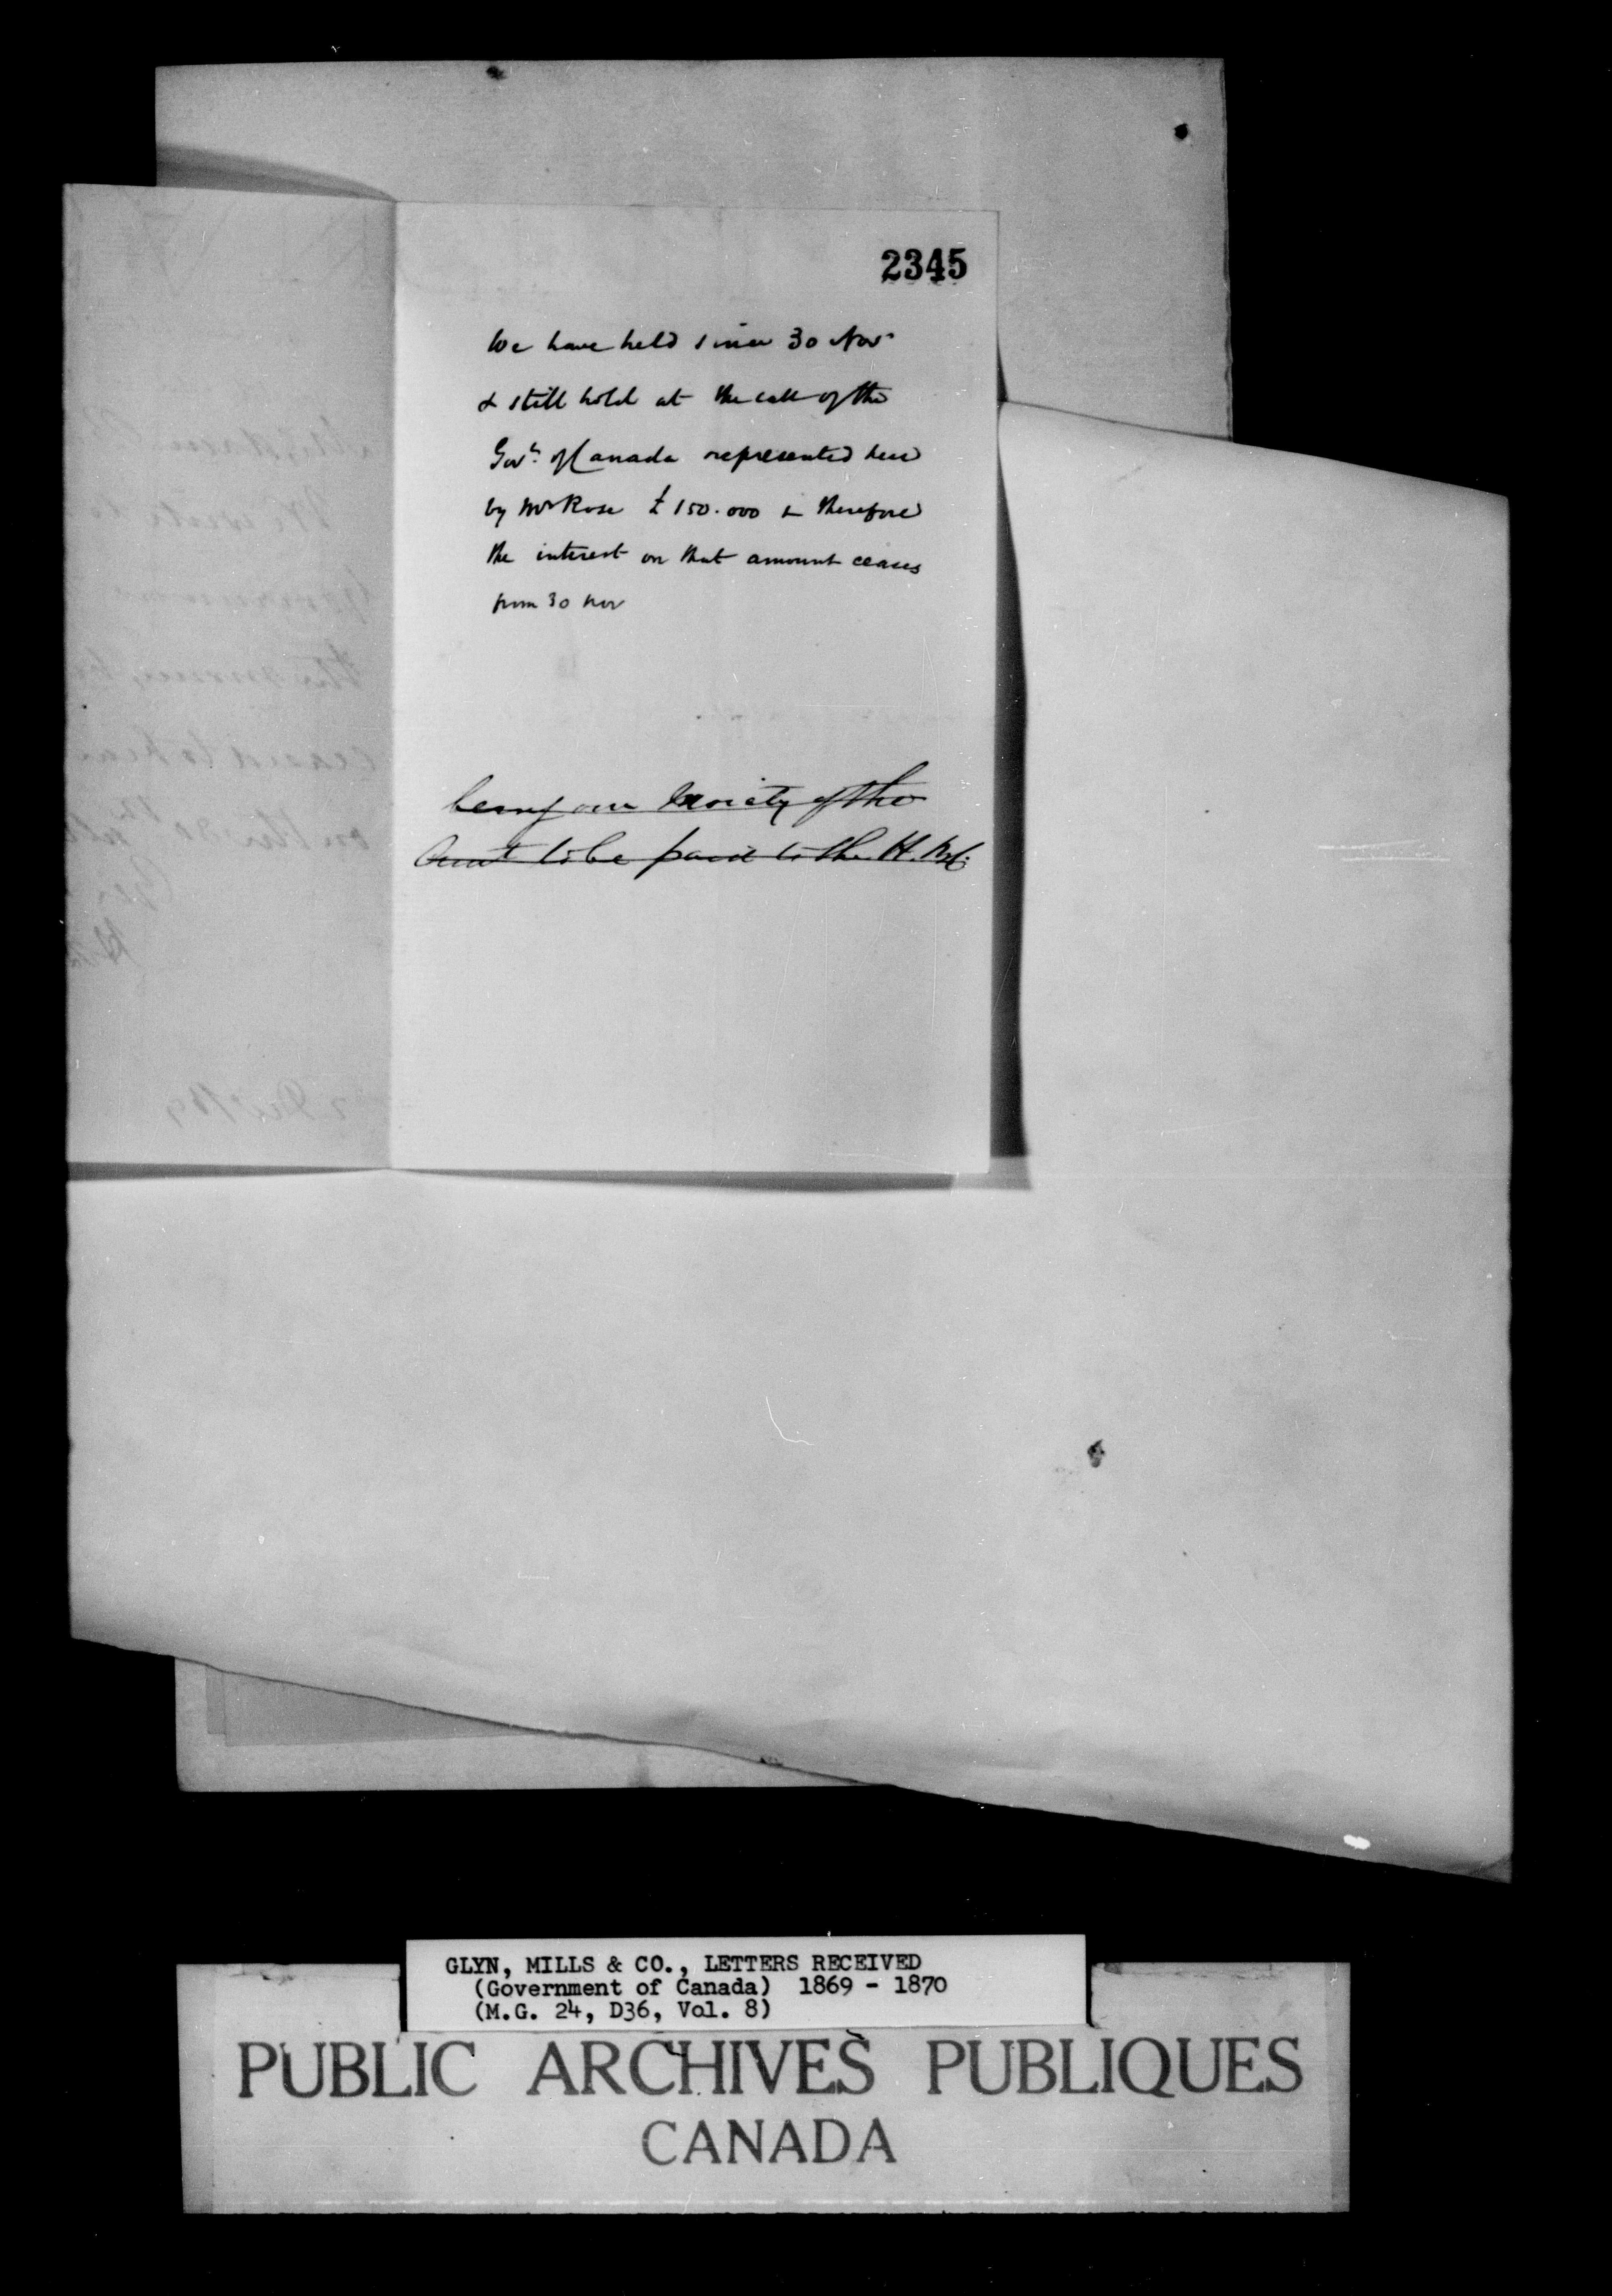 2345
We have held since 30 Nov
& still hold at the call of the
Govt. of Canada represented here
by Mr Rose £150.000 & therefore
the interest on that amount ceases
from 30 Nov
being our moiety of the
Amt to be paid to the H. B. C.
GLYN, MILLS & CO., LETTERS RECEIVED
(Government of Canada) 1869 - 1870
(M.G. 24, D36, Vol. 8)
PUBLIC ARCHIVES PUBLIQUES
CANADA